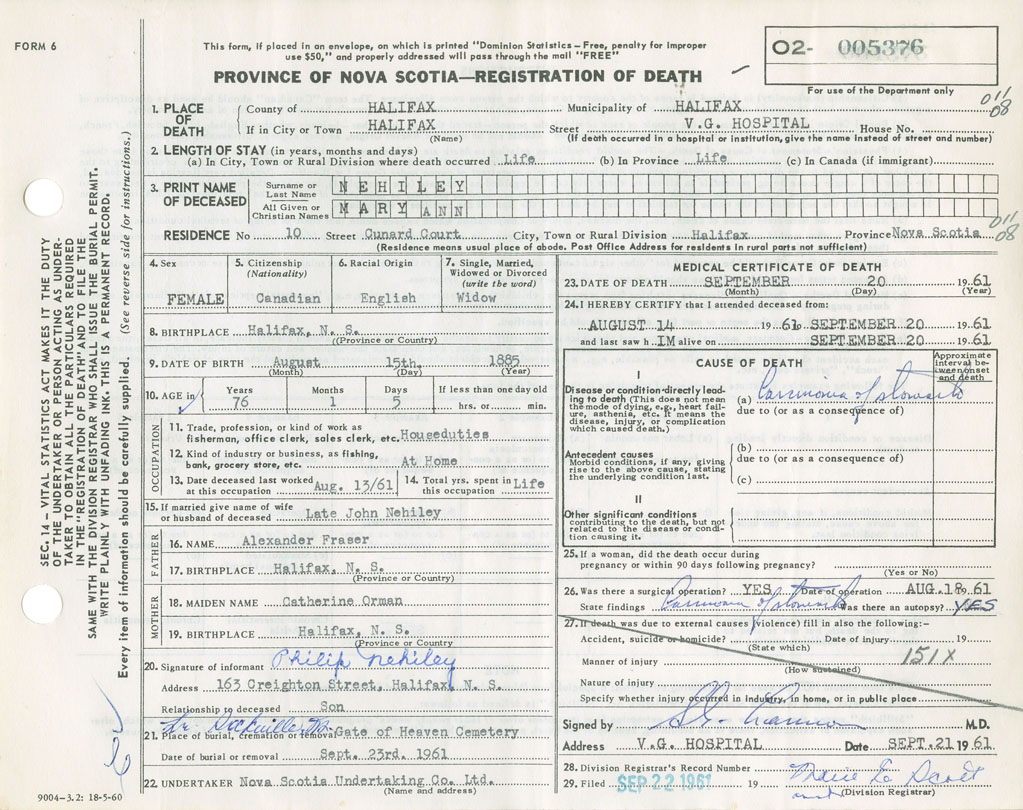 FORM 6
This form, if placed in an envelope, on which is printed "Dominion Statistics – Free, penalty for improper
use $50," and properly addressed will pass through the mail "FREE"
PROVINCE OF NOVA SCOTIA—REGISTRATION OF DEATH
02- 005376
For use of the Department only
011/08
1. PLACE OF DEATH
County of HALIFAX Municipality of HALIFAX
If in City or Town HALIFAX Street V.G. HOSPITAL House No.
(Name) (If death occurred in a hospital or institution, give the name instead of street and number)
2. LENGTH OF STAY (in years, months and days)
(a) In City, Town or Rural Division where death occurred Life (b) In Province Life (c) In Canada (if immigrant)
3. PRINT NAME OF DECEASED
Surname or Last Name NEHILEY
All Given or Christian Names MARY ANN
011/08
RESIDENCE No 10 Street Cunard Court City, Town or Rural Division Halifax Province Nova Scotia
(Residence means usual place of abode. Post Office Address for residents in rural parts not sufficient)
4. Sex FEMALE
5. Citizenship (Nationality) Canadian
6. Racial Origin English
7. Single, Married, Widowed or Divorced (write the word) Widow
8. BIRTHPLACE Halifax, N. S.
(Province or Country)
9. DATE OF BIRTH August 15th, 1885
(Month) (Day) (Year)
10. AGE in Years 76 Months 1 Days 5 If less than one day old hrs. or min.
OCCUPATION
11. Trade, profession, or kind of work as
fisherman, office clerk, sales clerk, etc. Houseduties
12. Kind of industry or business, as fishing,
bank, grocery store, etc. At Home
13. Date deceased last worked at this occupation Aug. 13/61
14. Total yrs. spent in this occupation Life
15. If married give name of wife
or husband of deceased Late John Nehiley
FATHER
16. NAME Alexander Fraser
17. BIRTHPLACE Halifax, N. S.
(Province or Country)
MOTHER
18. MAIDEN NAME Catherine Orman
19. BIRTHPLACE Halifax, N. S.
(Province or Country)
20. Signature of informant Philip Nehiley
Address 163 Creighton Street, Halifax, N. S.
Relationship to deceased Son
21. Place of burial, cremation or removal Gate of Heaven Cemetery
Date of burial or removal Sept. 23rd. 1961
22. UNDERTAKER Nova Scotia Undertaking Co. Ltd.
(Name and address)
MEDICAL CERTIFICATE OF DEATH
23. DATE OF DEATH SEPTEMBER 20 1961
(Month) (Day) (Year)
24. I HEREBY CERTIFY that I attended deceased from:
AUGUST 14 1961 to SEPTEMBER 20 1961
and last saw h IM alive on SEPTEMBER 20 1961
CAUSE OF DEATH
Approximate interval between onset and death
I
Disease or condition directly leading to death (This does not mean
the mode of dying, e.g., heart failure, asthenia, etc. It means the
disease, injury, or complication
which caused death.)
(a) Carcinoma of stomach
due to (or as a consequence of)
Antecedent causes
Morbid conditions, if any, giving
rise to the above cause, stating
the underlying condition last.
(b)
due to (or as a consequence of)
(c)
II
Other significant conditions
contributing to the death, but not
related to the disease or condition causing it.
25. If a woman, did the death occur during
pregnancy or within 90 days following pregnancy?
(Yes or No)
26. Was there a surgical operation? YES Date of operation AUG. 18 1961
State findings Carcinoma of stomach Was there an autopsy? YES
27. If death was due to external causes (violence) fill in also the following:–
Accident, suicide or homicide? Date of injury 19
(State which)
Manner of injury 151X
(How sustained)
Nature of injury
Specify whether injury occurred in Industry, in home, or in public place
Signed by M.D.
Address V.G. HOSPITAL Date SEPT. 21 1961
28. Division Registrar's Record Number
29. Filed SEP 22 1961
(Division Registrar)
SEC. 14 – VITAL STATISTICS ACT MAKES IT THE DUTY
OF THE UNDERTAKER OR PERSON ACTING AS UNDER-
TAKER TO OBTAIN ALL THE PARTICULARS REQUIRED
IN THE "REGISTRATION OF DEATH" AND TO FILE THE
SAME WITH THE DIVISION REGISTRAR WHO SHALL ISSUE THE BURIAL PERMIT.
WRITE PLAINLY WITH UNFADING INK. THIS IS A PERMANENT RECORD.
Every item of information should be carefully supplied. (See reverse side for instructions.)
9004-3.2: 18-5-60